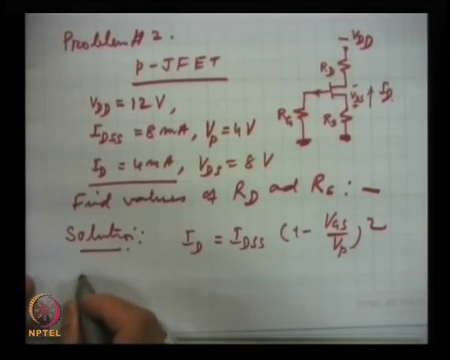 Problem # 2.
p-JFET
V_DD = 12 V,
I_DSS = 8 mA, V_p = 4V
I_D = 4 mA, V_DS = 8 V
Find values of R_D ad R_S : –
Solution:. I_D = I_DSS (1 - V_GS/V_p)^2
-V_DD
R_D
V_DS
I_D
R_G
R_S
NPTEL